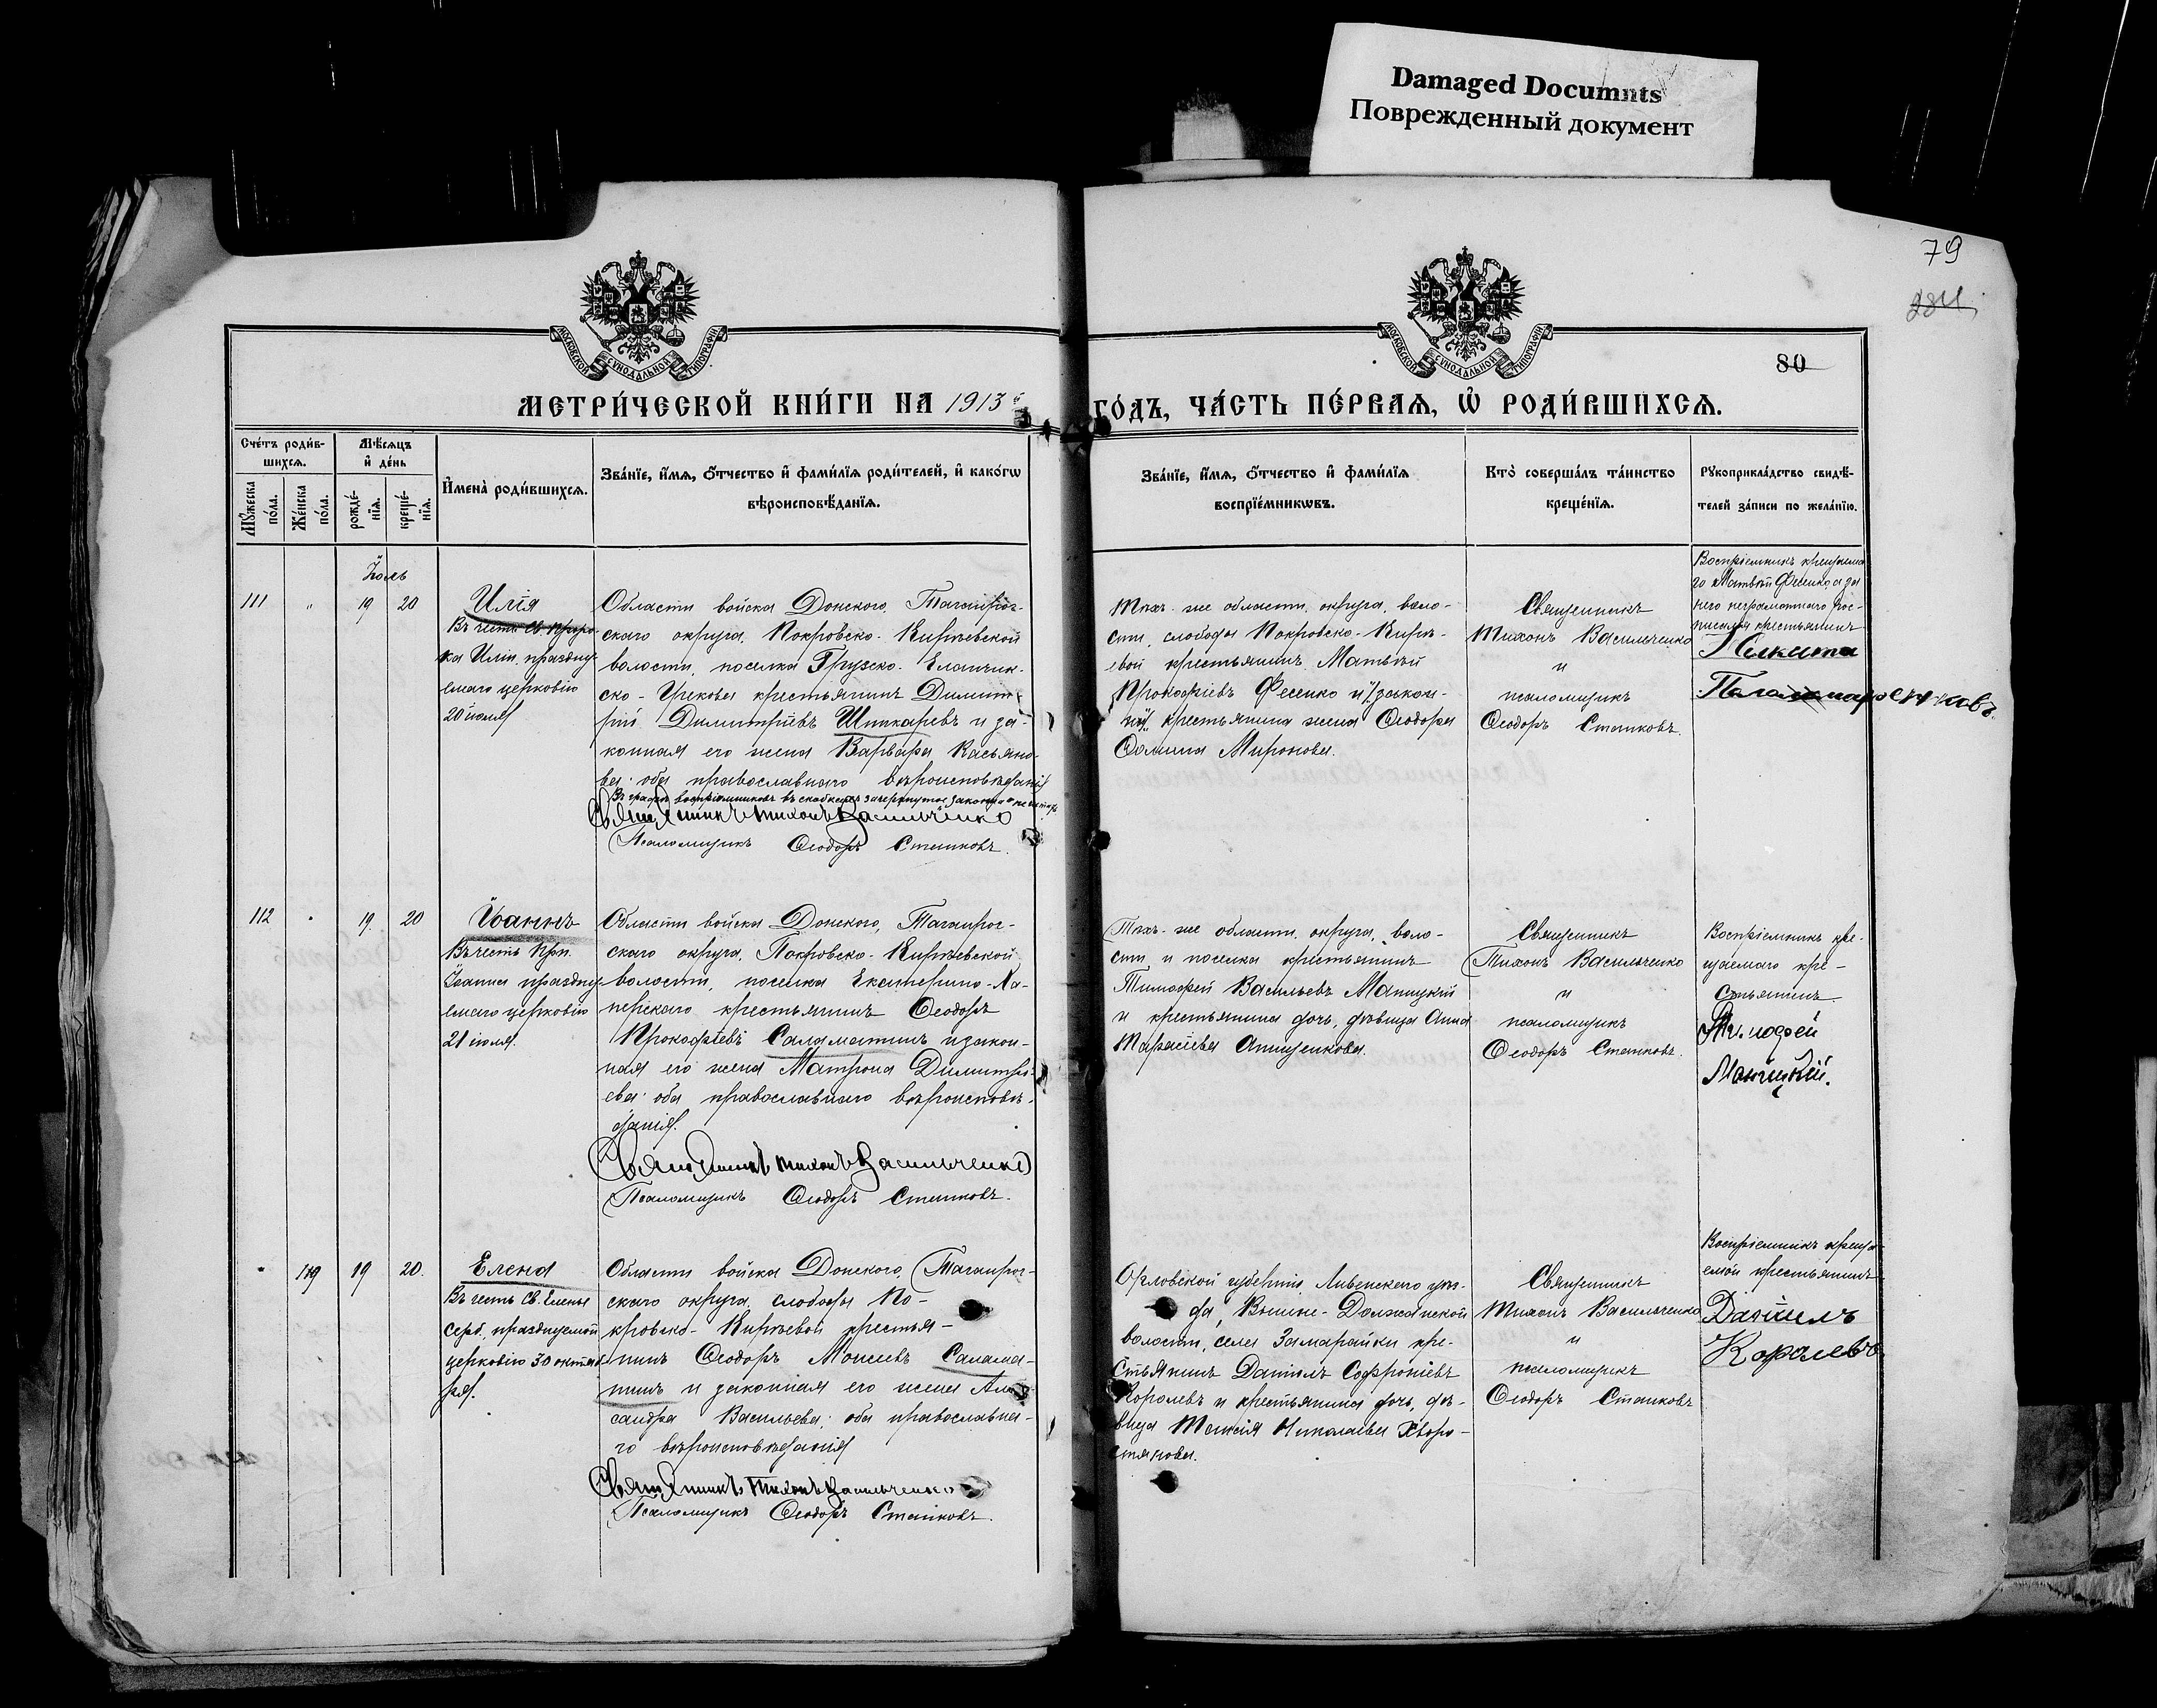 Damaged Documnts
Поврежденный документ
79
284
80
МОСКОВСКОЙ СѴНОДАЛЬНОЙ ТИПОГРАФІИ
МОСКОВСКОЙ СѴНОДАЛЬНОЙ ТИПОГРАФІИ
МЕТРИ́ЧЕСКОЙ КНИ́ГИ НА 1913
ГО́ДЪ, ЧА́СТЬ ПЕ́РВАѦ, Ѡ҆ РОДИ́ВШИХСѦ.
Сче́тъ роди́в-
шихсѧ.
Мꙋ́жеска по́ла.
Же́нска по́ла.
Мѣ́сѧцъ
и҆ де́нь
рожде́-
нїѧ.
креще́-
нїѧ.
И҆мена̀ роди́вшихсѧ.
Зва́нїе, и҆́мѧ, ѻ҆́тчество и҆ фами́лїѧ роди́телей, и҆ како́гѡ
вѣроисповѣ́данїѧ.
Зва́нїе, и҆́мѧ, ѻ҆́тчество и҆ фами́лїѧ
воспрїе́мникѡвъ.
Кто̀ соверша́лъ та́инство
креще́нїѧ.
Рꙋкоприкла́дство свидѣ́-
телей за́писи по жела́нїю.
Іюль
111 " 19 20
Илія
Въ честь Св. проро-
ка Иліи, праздну-
емаго церковію
20 іюля
Области войска Донского, Таганрог-
скаго округа, Покровско-Кирѣевской
волости, поселка Грузско-Еланчик-
ско-Урекова крестьянинъ Димит-
рій Димитріевъ Шпикаревъ и за-
конная его жена Варвара Касьяно-
ва; оба православнаго вѣроисповѣданія
Въ графѣ воспріемниковъ въ скобкахъ зачеркнутое "закон
Священникъ Тихонъ Васильченко
Псаломщикъ Ѳеодоръ Станковъ.
Тѣхъ-же области, округа, воло-
сти, слободы Покровско-Кирѣ-
евой крестьянинъ Матвѣй
Прокофіевъ Фесенко и (закон-
ная) крестьянина жена Ѳеодора
Ѳомина Миронова.
Священникъ
Тихонъ Васильченко
и
псаломщикъ
Ѳеодоръ Станковъ.
Воспріемникъ крещаема-
го Матвѣй Фесенко, а за
него неграмотнаго рос-
писался крестьянинъ
Никита
112 " 19. 20
Іоаннъ
Въ честь Прп.
Іоанна праздну-
емаго церковію
21 іюля.
Области войска Донского, Таганрог-
скаго округа, Покровско-Кирѣевской
волости, поселка Екатерино-Ха-
перскаго крестьянинъ Ѳеодоръ
Прокофіевъ Саламатинъ и закон-
ная его жена Матрона Димитрі-
ева; оба православнаго вѣроисповѣ-
данія.
Священникъ Тихонъ Васильченко
Псаломщикъ Ѳеодоръ Станковъ.
Тѣхъ-же области, округа, воло-
сти и поселка крестьянинъ
Тимофей Васильевъ Маницкій
и крестьянина дочь, дѣвица Анна
Тарасіева Анищенкова.
Священникъ
Тихонъ Васильченко
и
псаломщикъ
Ѳеодоръ Станковъ.
Воспріемникъ кре-
щаемаго кре-
стьянинъ
Тимофей
Маницкій.
" 119 19 20.
Елена
Въ честь Св. Елены
Серб., празднуемой
церковію 30 октяб-
ря.
Области войска Донского, Таганрог-
скаго округа, слободы По-
кровско-Кирѣевой крестья-
нинъ Ѳеодоръ Моисеевъ Салама-
тинъ и законная его жена Алек-
сандра Васильева; оба православна-
го вѣроисповѣданія
Священникъ Тихонъ Васильченко
Псаломщикъ Ѳеодоръ Станковъ.
Орловской губерніи, Ливенскаго уѣз-
да, Вышне-Должанской
волости, села Замарайки кре-
стьянинъ Даніилъ Софроніевъ
Королевъ и крестьянина дочь, дѣ-
вица Таисія Николаева Хворо-
стянова.
Священникъ
Тихонъ Васильченко
и
псаломщикъ
Ѳеодоръ Станковъ
Воспріемникъ креща-
емой крестьянинъ
Даніилъ
Королевъ